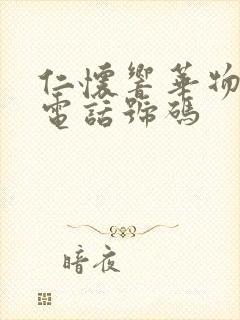 仁懷響華物
電話號碼
暗夜